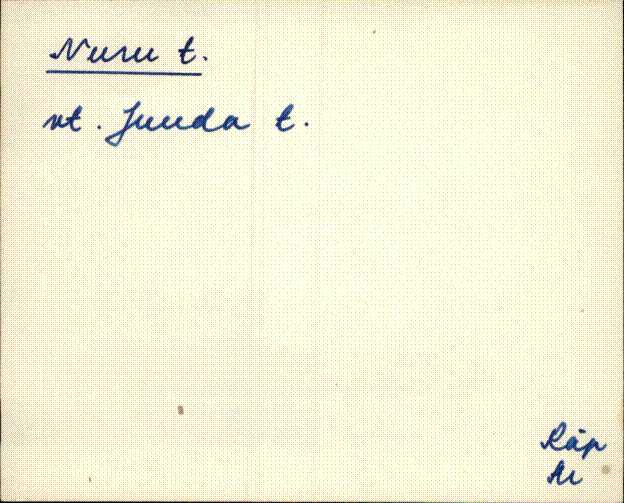 Nuru t.
vt. Juuda t.
Räp